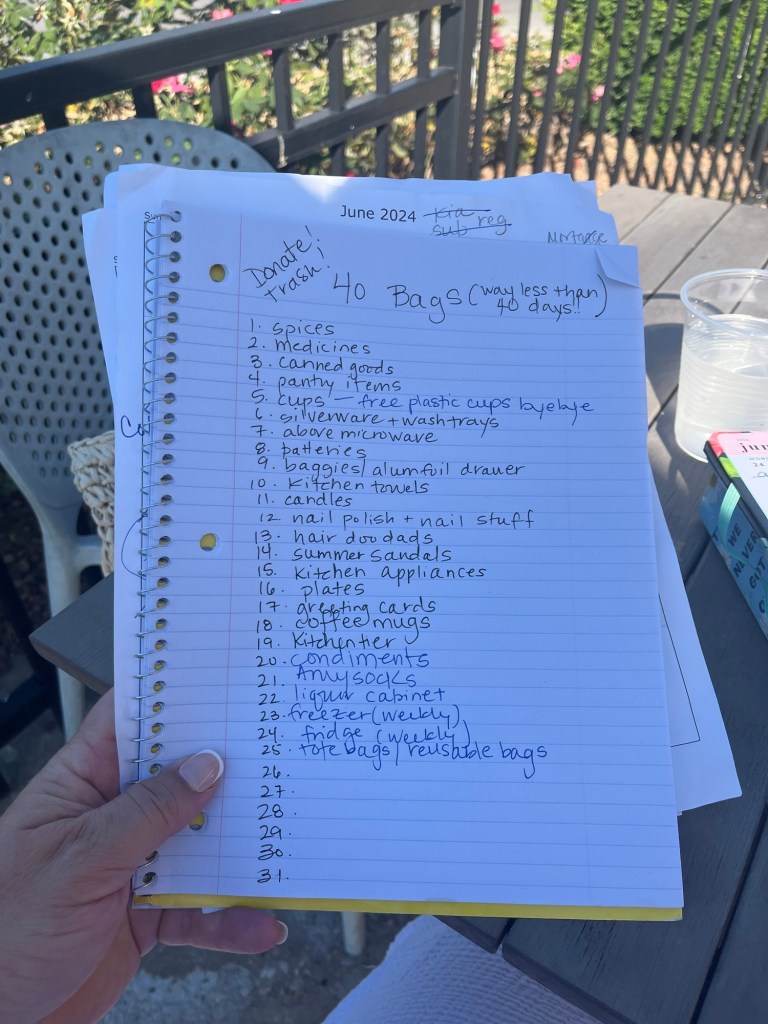 June 2024
Kia
sub reg
Mortgage
Sun
Donate!
Trash!
40 Bags (way less than
40 days!!)
1. spices
2. medicines
3. canned goods
4. pantry items
5. cups — free plastic cups byebye
6. silverware + wash trays
7. above microwave
8. batteries
9. baggies/alumfoil drawer
10. Kitchen towels
11. candles
12. nail polish + nail stuff
13. hair doo dads
14. summer sandals
15. Kitchen appliances
16. plates
17. greeting cards
18. coffee mugs
19. Kitchen tier
20. condiments
21. Amy socks
22. liquor cabinet
23. freezer (weekly)
24. fridge (weekly)
25. tote bags/reusable bags
26.
27.
28.
29.
30.
31.
24
WE
NEVER